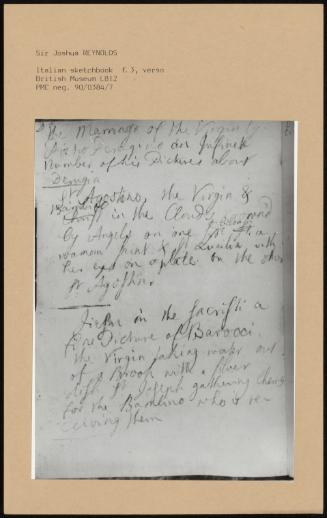 Sir Joshua REYNOLDS
Italian sketchbook f.3, verso
British Museum LB12
PMC neg. 90/0384/7
The Marriage of the Virgin by
Pietro Perugino an Infinit
number of his Pictures about
Perugia
St Agostino, the Virgin &
in the Clouds
by Angels on one
woman Saint & St Lucilia with
her eyes on a plate on the other
St Agostino
in the Sacristi a
fine Picture of Barocci.
the Virgin taking water out
of a Brook with a silver
dish St Joseph gathering cherrys
for the Bambino who is re-
ceiving them